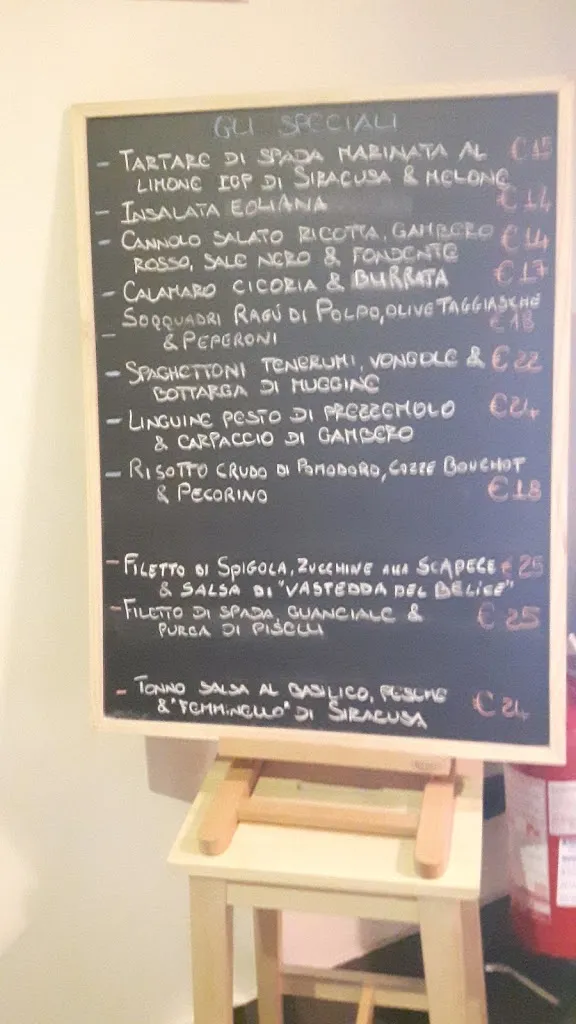 GLI SPECIALI
- TARTARE DI SPADA MARINATA AL € 15
LIMONE IGP DI SIRACUSA & MELONE
- INSALATA EOLIANA € 14
- CANNOLO SALATO RICOTTA, GAMBERO € 14
ROSSO, SALE NERO & FONDENTE
- CALAMARO CICORIA & BURRATA € 17
- SOQQUADRI RAGÚ DI POLPO, OLIVE TAGGIASCHE
& PEPERONI € 18
- SPAGHETTONI TENERUMI, VONGOLE & € 22
BOTTARGA DI MUGGINE
- LINGUINE PESTO DI PREZZEMOLO € 24
& CARPACCIO DI GAMBERO
- RISOTTO CRUDO DI POMODORO, COZZE BOUCHOT
& PECORINO € 18
- FILETTO DI SPIGOLA, ZUCCHINE ALLA SCAPECE € 25
& SALSA DI "VASTEDDA DEL BELICE"
- FILETTO DI SPADA GUANCIALE & € 25
PUREA DI PISELLI
- TONNO SALSA AL BASILICO, PESCHE € 24
& "FEMMINELLO" DI SIRACUSA